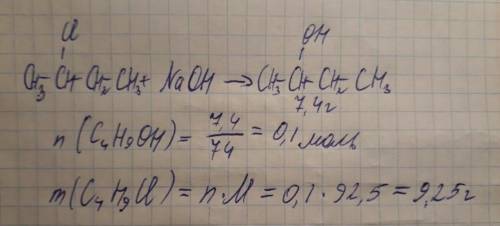 Cl OH
CH₃-CH-CH₂-CH₃ + NaOH → CH₃-CH-CH₂-CH₃
7,4г
n(C₄H₉OH) = 7,4/74 = 0,1 моль
m(C₄H₉Cl) = n·M = 0,1·92,5 = 9,25г